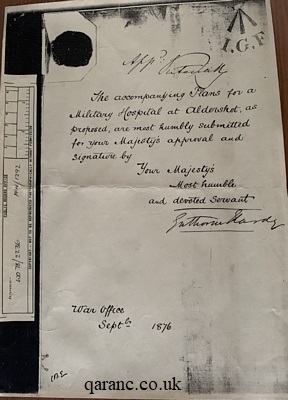 I.G.F
Appd.
The accompanying Plans for a
Military Hospital at Aldershot, as
proposed, are most humbly submitted
for your Majesty's approval and
signature by
Your Majesty's
Most humble
and devoted Servant
Gathorne Hardy
War Office
Septbr 1876
PUBLIC RECORD OFFICE
qaranc.co.uk